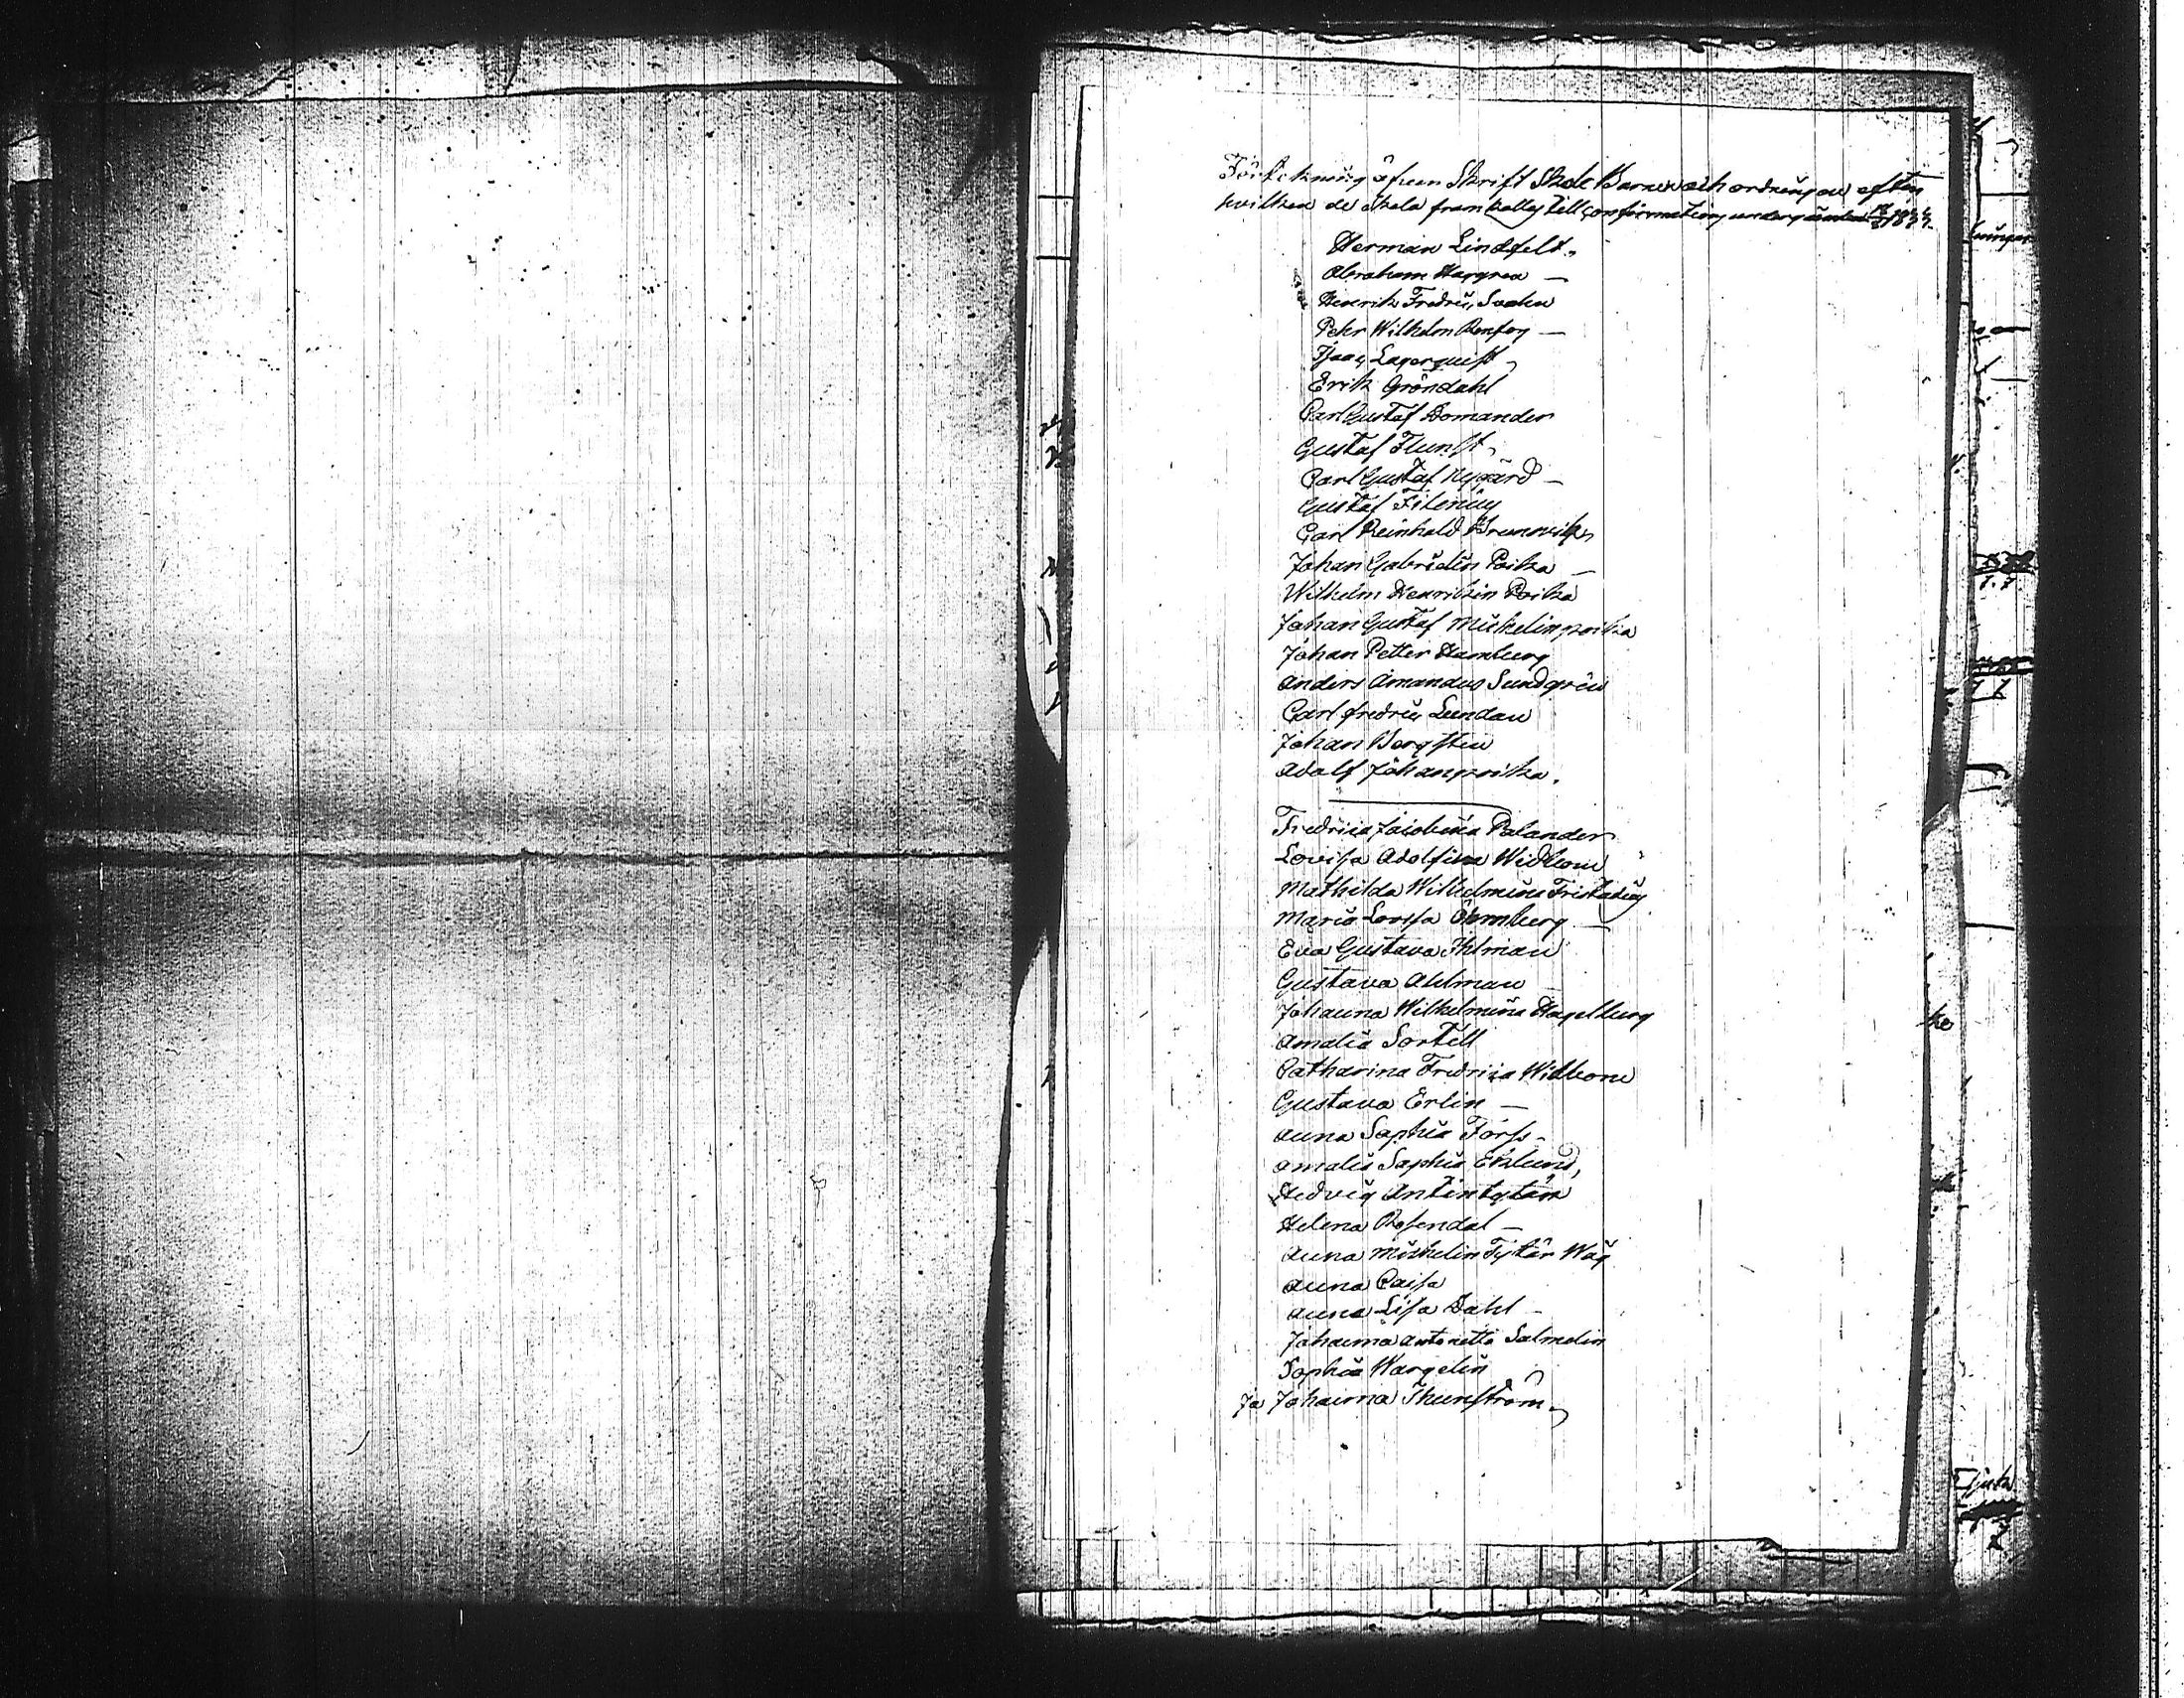 Förtekning öfwer Skrift Skole Barnen och ordningen efter
hvilken de skola fram kallas till confirmation
Herman Lindfelt
Abraham Haggren —
Henrik Fredric
Pehr Wilhelm Renfors —
Isaac Lagerquist
Erik Gröndahl
Carl Gustaf Bomander
Gustaf
Carl Gustaf Nygård —
Gustaf Filenius
Carl Reinhold
Johan Gabrielin Poika —
Wilhelm Henrikin Poika
Johan Gustaf Michelin poika
Johan Petter Hamberg
Anders Amandus Sundgrén
Carl fredric Lundan
Johan Bergsten
Adolf Johanpoika.
Fredrica Jacobina Palander
Lovisa Adolfina Widbom
Mathilda Wilhelmina
Maria Lovisa Öhrnberg —
Eva Gustava Ihlman
Gustava Ahlman
Johanna Wilhelmina Hagelberg
Amalia Sortell
Catharina Fredrica Widbom
Gustava Erlin —
Anna Sophia Forss
Amalia Sophia Eklund,
Hedvig Antintytär
Helena Rosendal —
Anna Michelin Tytär
Anna Caisa
Anna Lisa Dahl —
Johanna Antonetta Salmelin
Sophia Wargelin
Ja Johanna Thunström